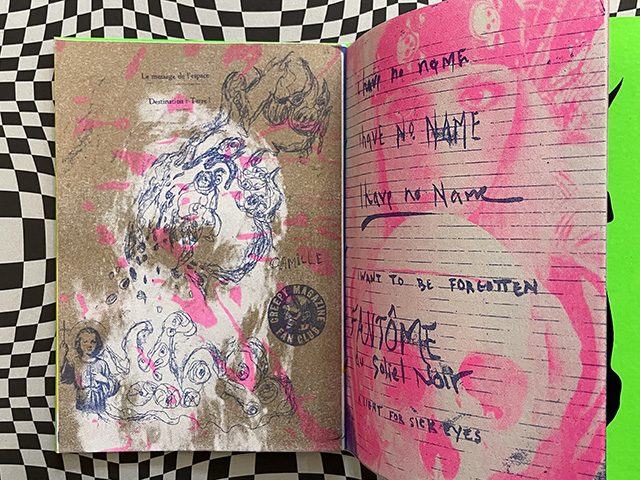 Le message de l'espace
Destination : Terre
CAMILLE
CREEPY MAGAZINE
FAN CLUB
I have no name
I have No NAME
I have no Name
I WANT TO BE FORGOTTEN
FANTÔME
du Soleil Noir
LIGHT FOR SICK EYES